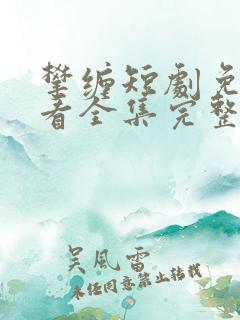 攀缠短剧免
看全集完整
吴风雷
未经同意禁止转载